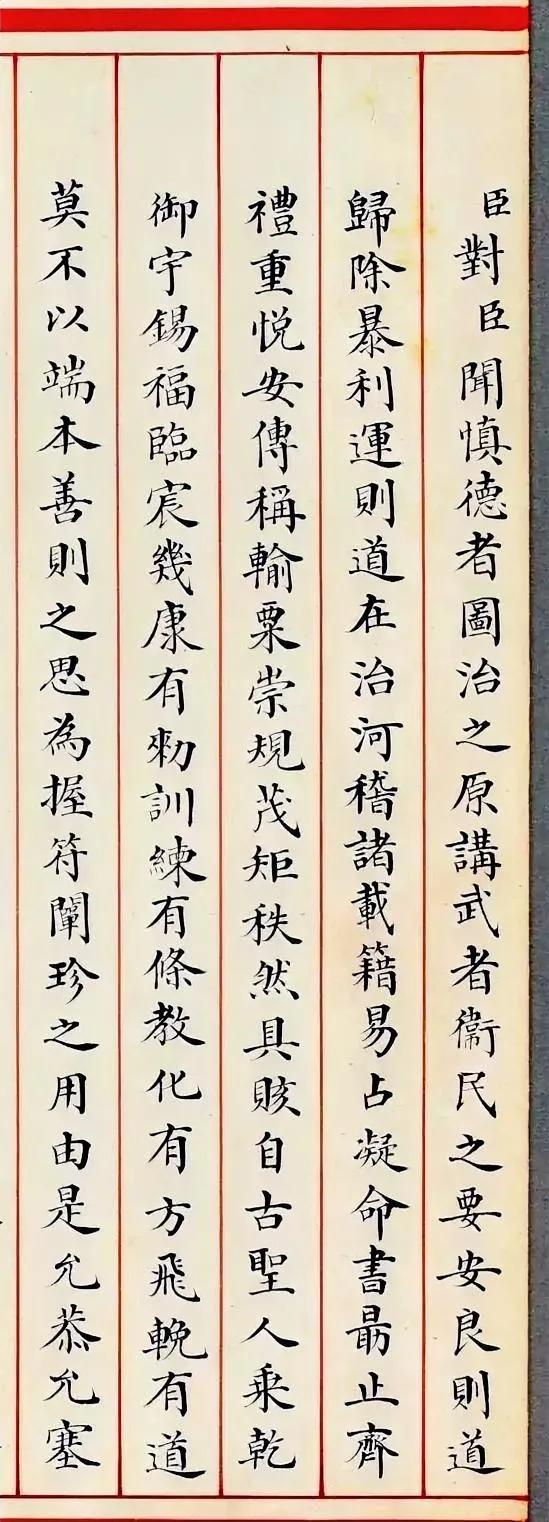 臣對臣聞慎德者圖治之原講武者衞民之要安良則道
歸除暴利運則道在治河稽諸載籍易占凝命書勗止齊
禮重悅安傳稱輸粟崇規茂矩秩然具賅自古聖人乗乾
御宇錫福臨宸幾康有勑訓練有條教化有方飛輓有道
莫不以端本善則之思為握符闡珍之用由是允恭允塞